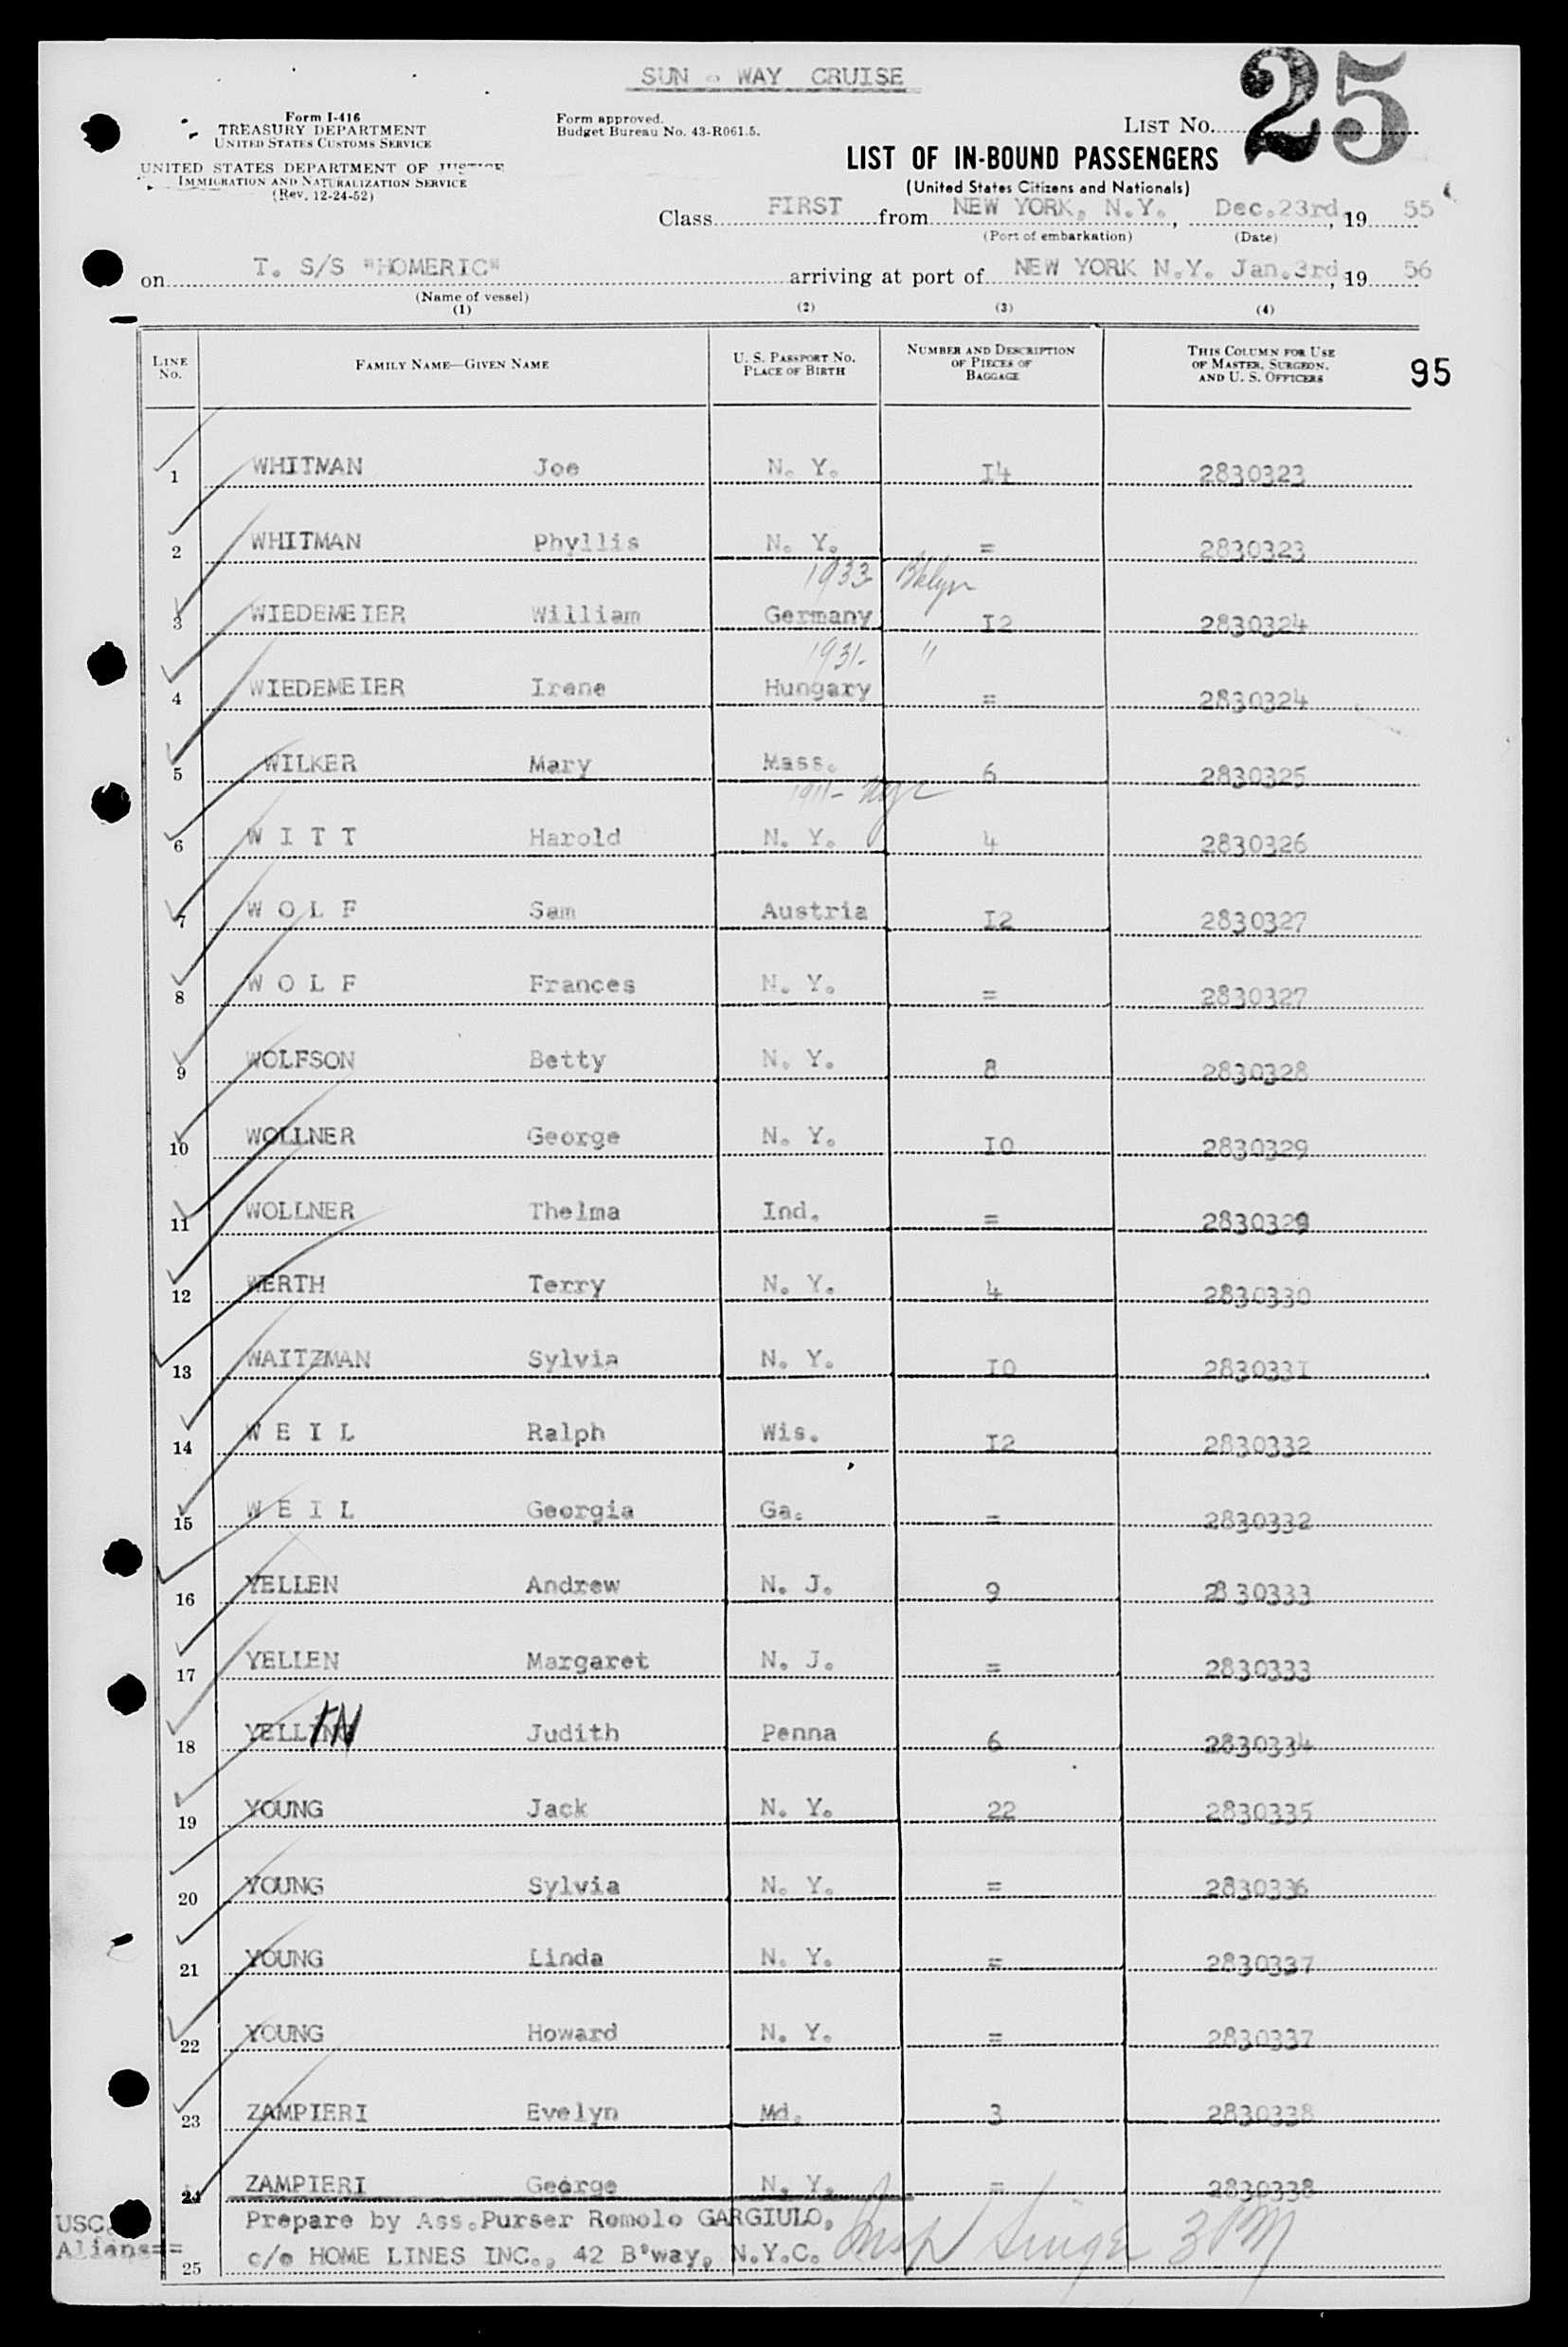 SUN - WAY CRUISE
25
Form I-416
TREASURY DEPARTMENT
UNITED STATES CUSTOMS SERVICE
UNITED STATES DEPARTMENT OF JUSTICE
IMMIGRATION AND NATURALIZATION SERVICE
(Rev. 12-24-52)
Form approved.
Budget Bureau No. 43-R061.5.
LIST NO.
LIST OF IN-BOUND PASSENGERS
(United States Citizens and Nationals)
Class FIRST from NEW YORK, N.Y., Dec.23rd, 19 55
(Port of embarkation) (Date)
on T. S/S "HOMERIC" arriving at port of NEW YORK N.Y. Jan.3rd, 19 56
(Name of vessel)
(1) (2) (3) (4)
LINE NO. FAMILY NAME—GIVEN NAME U. S. PASSPORT NO. PLACE OF BIRTH NUMBER AND DESCRIPTION OF PIECES OF BAGGAGE THIS COLUMN FOR USE OF MASTER, SURGEON, AND U. S. OFFICERS 95
1 WHITMAN Joe N. Y. I4 2830323
2 WHITMAN Phyllis N. Y. = 2830323
1933 Bklyn
3 WIEDEMEIER William Germany I2 2830324
1931- "
4 WIEDEMEIER Irene Hungary = 2830324
5 WILKER Mary Mass. 6 2830325
1911-
6 W I T T Harold N. Y. 4 2830326
7 W O L F Sam Austria I2 2830327
8 W O L F Frances N. Y. = 2830327
9 WOLFSON Betty N. Y. 8 2830328
10 WOLLNER George N. Y. I0 2830329
11 WOLLNER Thelma Ind. = 2830329
12 WERTH Terry N. Y. 4 2830330
13 WAITZMAN Sylvia N. Y. I0 283033I
14 W E I L Ralph Wis. I2 2830332
15 W E I L Georgia Ga. = 2830332
16 YELLEN Andrew N. J. 9 2830333
17 YELLEN Margaret N. J. = 2830333
18 YELLIN Judith Penna 6 2830334
19 YOUNG Jack N. Y. 22 2830335
20 YOUNG Sylvia N. Y. = 2830336
21 YOUNG Linda N. Y. = 2830337
22 YOUNG Howard N. Y. = 2830337
23 ZAMPIERI Evelyn Md. 3 2830338
24 ZAMPIERI George N. Y. = 2830338
USC Prepare by Ass.Purser Remolo GARGIULO,
Aliens== c/o HOME LINES INC., 42 B'way, N.Y.C. Insp Singer 3 PM
25